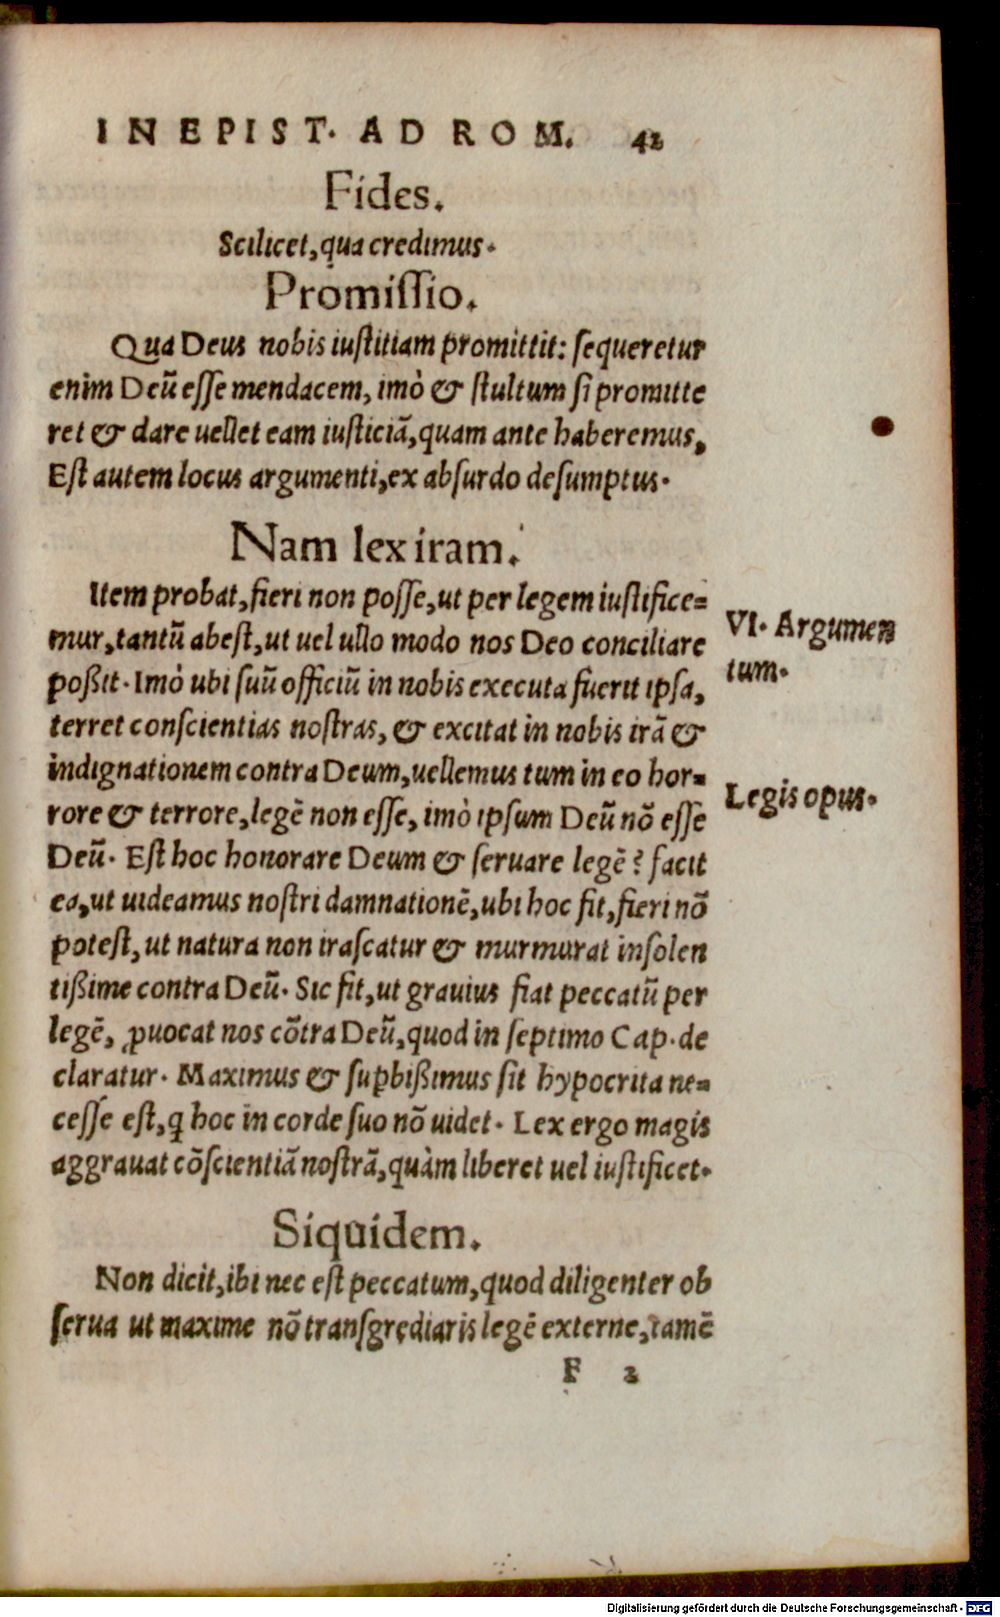 IN EPIST. AD ROM. 42
Fides.
Scilicet, qua credimus.
Promissio.
Qua Deus nobis iustitiam promittit: sequeretur
enim Deũ esse mendacem, imò & stultum si promitte
ret & dare uellet eam iusticiã, quam ante haberemus,
Est autem locus argumenti, ex absurdo desumptus.
Nam lex iram.
Item probat, fieri non posse, ut per legem iustifice=
mur, tantũ abest, ut uel ullo modo nos Deo conciliare
poßit. Imò ubi suũ officiũ in nobis executa fuerit ipsa,
VI. Argumen
tum.
terret conscientias nostras, & excitat in nobis irã &
indignationem contra Deum, uellemus tum in eo hor=
rore & terrore, legẽ non esse, imò ipsum Deũ nõ esse
Legis opus.
Deũ. Est hoc honorare Deum & seruare legẽ? facit
ea, ut uideamus nostri damnationẽ, ubi hoc fit, fieri nõ
potest, ut natura non irascatur & murmurat insolen
tißime contra Deũ. Sic fit, ut grauius fiat peccatũ per
legẽ, ꝓuocat nos cõtra Deũ, quod in septimo Cap. de
claratur. Maximus & suꝑbißimus sit hypocrita ne=
cesse est, ꝙ hoc in corde suo nõ uidet. Lex ergo magis
aggrauat cõscientiã nostrã, quàm liberet uel iustificet.
Siquidem.
Non dicit, ibi nec est peccatum, quod diligenter ob
serua ut maxime nõ transgrediaris legẽ externe, tamẽ
F 2
Digitalisierung gefördert durch die Deutsche Forschungsgemeinschaft - DFG